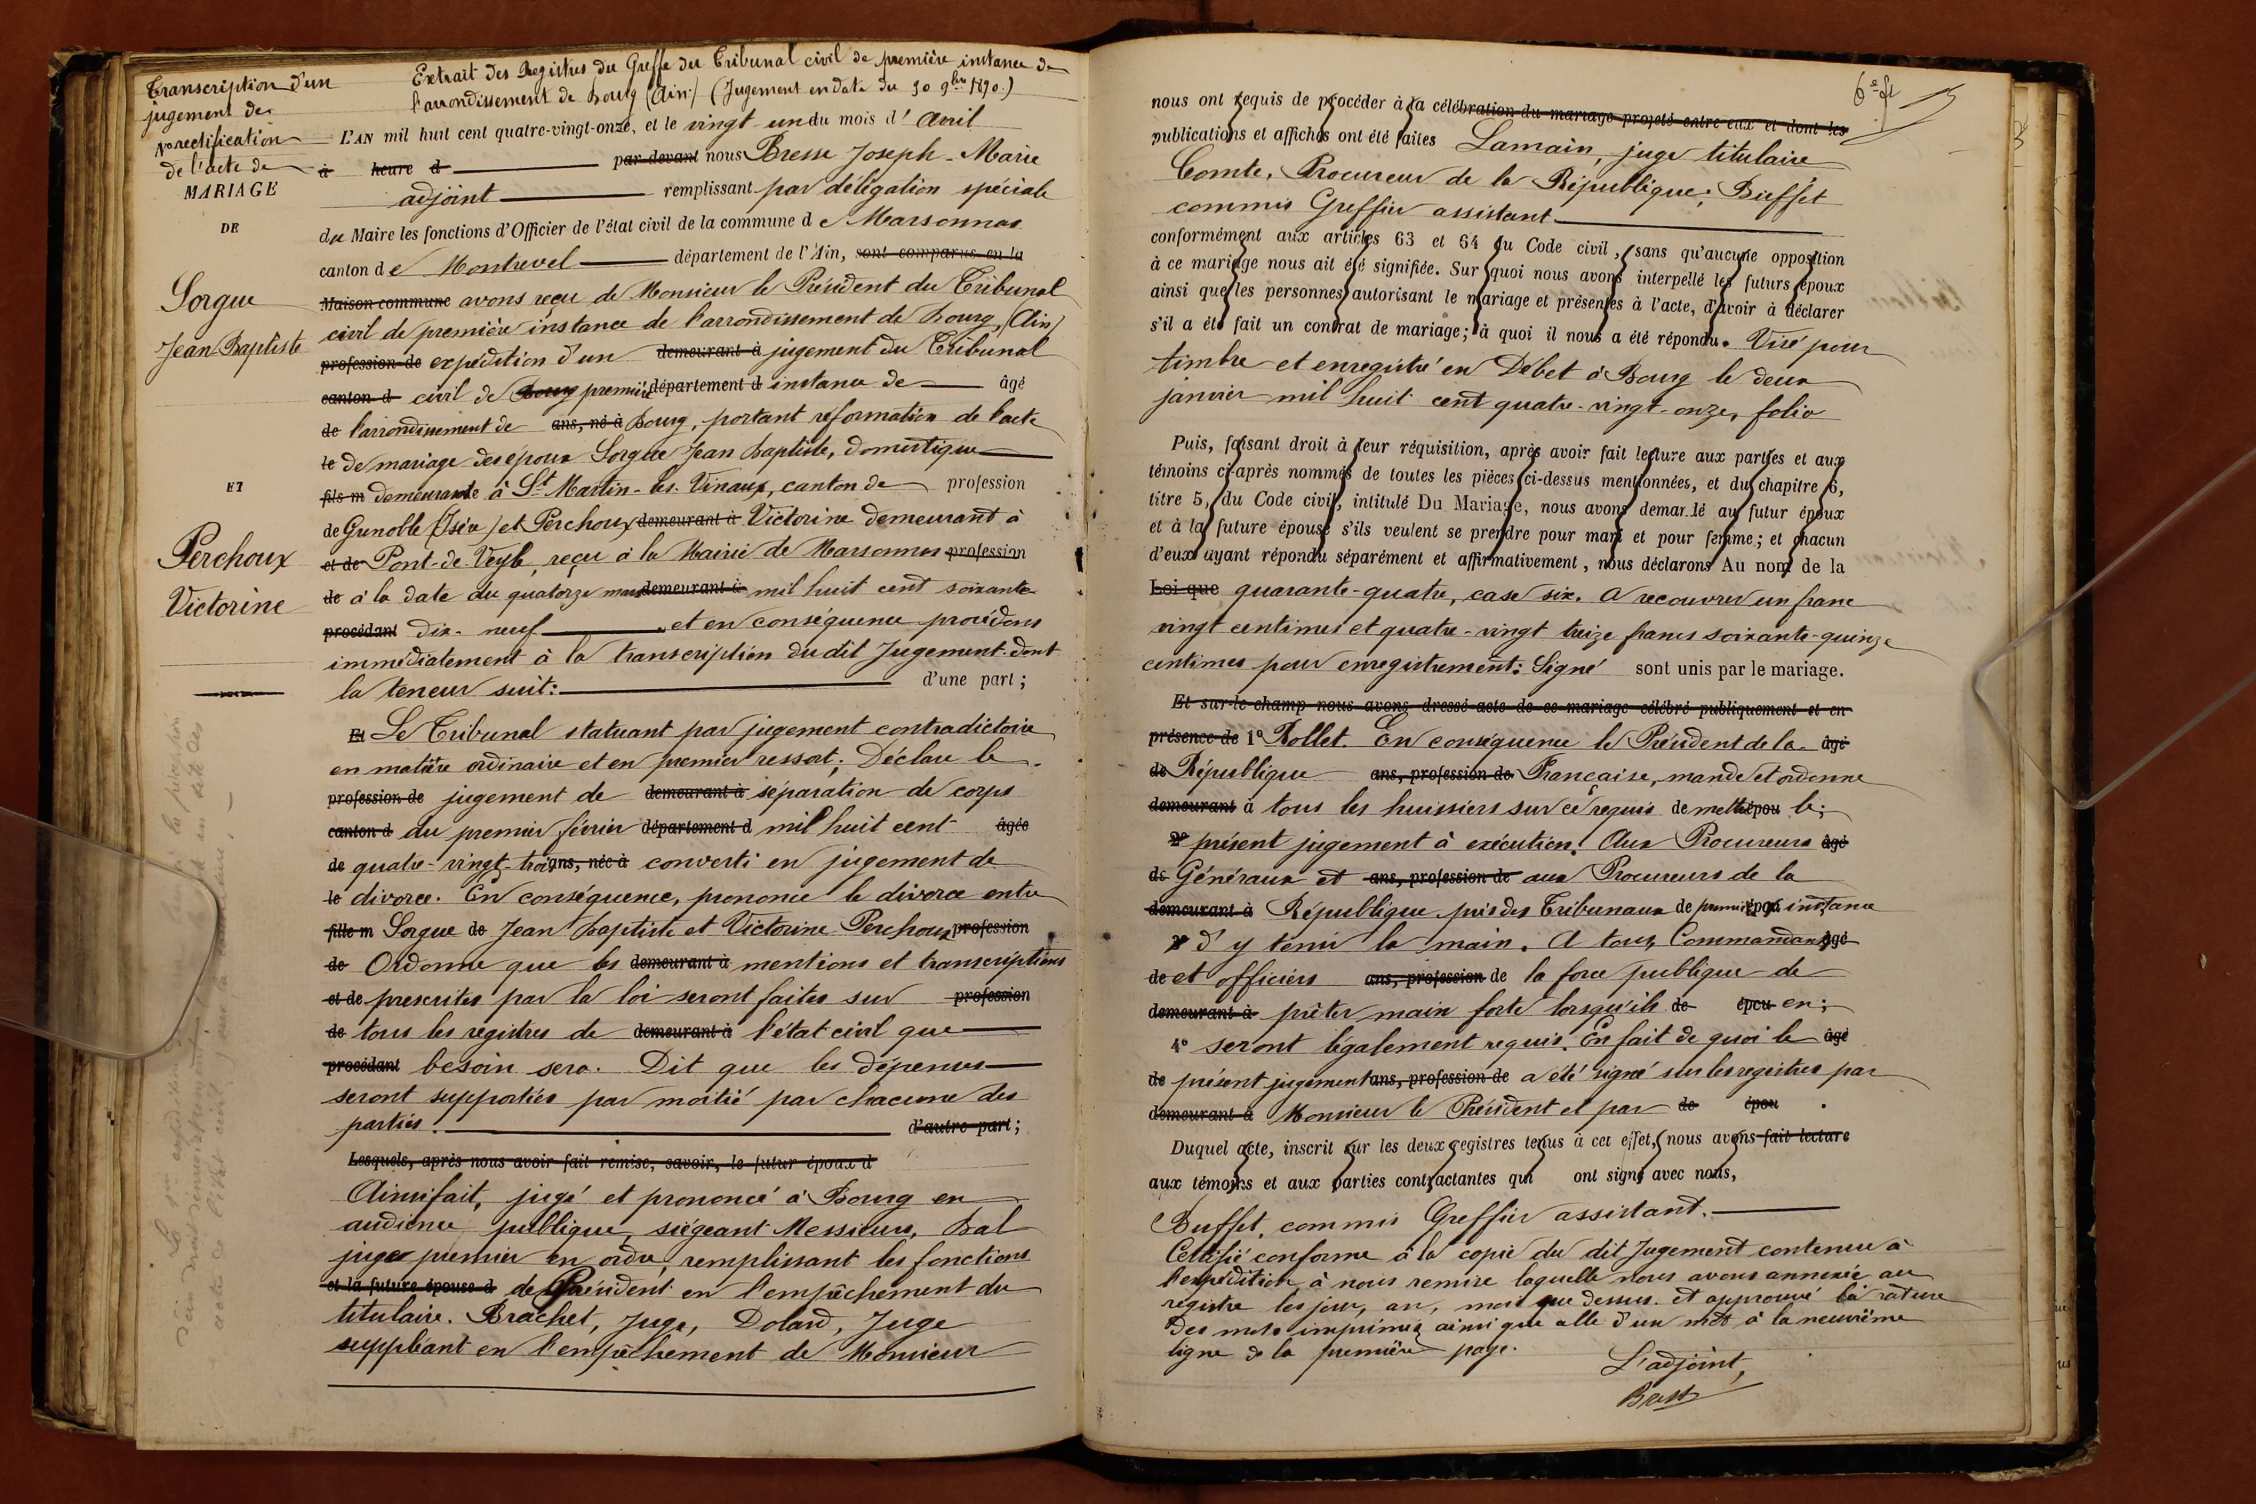 Transcription d'un
jugement de
No rectification
de l'acte de
MARIAGE
DE
Sorgue
Jean-Baptiste
ET
Perchoux
Victorine
Extrait des Registres du Greffe du Tribunal civil de première instance de
l'arrondissement de Bourg (Ain) (Jugement en date du 30 9bre 1890.)
L'AN mil huit cent quatre-vingt-onze, et le vingt-un du mois d'Avril
à heure d par devant nous Bresse Joseph-Marie
adjoint remplissant par délégation spéciale
du Maire les fonctions d'Officier de l'état civil de la commune de Marsonnas
canton de Montrevel département de l'Ain, sont comparus en la
Maison commune avons reçu de Monsieur le Président du Tribunal
civil de première instance de l'arrondissement de Bourg, (Ain)
profession de expédition d'un demeurant à jugement du Tribunal
canton d civil de Bourg première département d instance de âgé
de l'arrondissement de ans, né à Bourg, portant reformation de l'acte
le de mariage des époux Sorgue Jean Baptiste, domestique
fils m demeurante à St Martin-les-Vinaux, canton de profession
de Grenoble (Isère) et Perchoux demeurant à Victorine demeurant à
et de Pont-de-Veyle, reçu à la Mairie de Marsonnas profession
de à la date du quatorze mars demeurant à mil huit cent soixante
procédant dix-neuf et en conséquence procédons
immédiatement à la transcription dudit Jugement dont
la teneur suit: d'une part;
Et Le Tribunal statuant par jugement contradictoire
en matière ordinaire et en premier ressort; Déclare le
profession de jugement de demeurant à séparation de corps
canton d du premier février département d mil huit cent âgée
de quatre-vingt-trois ans, née à converti en jugement de
le divorce. En conséquence, prononce le divorce entre
fille m Sorgue de Jean Baptiste et Victorine Perchoux profession
de Ordonne que les demeurant à mentions et transcriptions
et de prescrites par la loi seront faites sur profession
de tous les registres de demeurant à l'état civil que
procédant besoin sera. Dit que les dépenses
seront supportiés par moitié par chacune des
parties. d'autre part;
Lesquels, après nous avoir fait remise, savoir, le futur époux d
Ainsi fait, jugé et prononcé à Bourg en
audience publique, siégeant Messieurs, Bal
juge premier en ordre, remplissant les fonctions
et la future épouse d de Président en l'empêchement du
titulaire. Brachet, Juge, Dolard, Juge
suppléant en l'empêchement de Monsieur
6e ft
nous ont requis de procéder à la célébration du mariage projeté entre eux et dont les
publications et affiches ont été faites Lamain, juge titulaire
Comte, Procureur de la République; Buffet
commis Greffier assistant
conformément aux articles 63 et 64 du Code civil, sans qu'aucune opposition
à ce mariage nous ait été signifiée. Sur quoi nous avons interpellé les futurs époux
ainsi que les personnes autorisant le mariage et présentes à l'acte, d'avoir à déclarer
s'il a été fait un contrat de mariage; à quoi il nous a été répondu. Visé pour
timbre et enregistré en Débet à Bourg le deux
janvier mil huit cent quatre-vingt-onze, folio
Puis, faisant droit à leur réquisition, après avoir fait lecture aux parties et aux
témoins ci-après nommés de toutes les pièces ci-dessus mentionnées, et du chapitre 6,
titre 5, du Code civil, intitulé Du Mariage, nous avons demandé au futur époux
et à la future épouse s'ils veulent se prendre pour mari et pour femme; et chacun
d'eux ayant répondu séparément et affirmativement, nous déclarons Au nom de la
Loi que quarante-quatre, case six. A recouvrer un franc
vingt centimes et quatre-vingt treize francs soixante-quinze
centimes pour enregistrement: Signé sont unis par le mariage.
Et sur-le-champ nous avons dressé acte de ce mariage célébré publiquement et en
présence de 1º Rollet. En conséquence le Président de la âgé
de République ans, profession de Française, mande et ordonne
demeurant à tous les huissiers sur ce requis de mettre épou le;
2º présent jugement à exécution. Aux Procureurs âgé
de Généraux et ans, profession de aux Procureurs de la
demeurant à République près des Tribunaux de première épou instance
3º d'y tenir la main. A tous Commandants âgé
de et officiers ans, profession de la force publique de
demeurant à prêter main forte lorsqu'ils de épou en;
4º seront légalement requis. En fait de quoi le âgé
de présent jugement ans, profession de a été signé sur les registres par
demeurant à Monsieur le Président et par de épou .
Duquel acte, inscrit sur les deux registres tenus à cet effet, nous avons fait lecture
aux témoins et aux parties contractantes qui ont signé avec nous,
Buffet, commis Greffier assistant.
Certifié conforme à la copie du dit Jugement contenu à
l'expédition à nous remise laquelle nous avons annexée au
registre les jour, an, mois que dessus. et approuvé la râture
des mots imprimés ainsi que celle d'un mot à la neuvième
ligne de la première page.
L'adjoint,